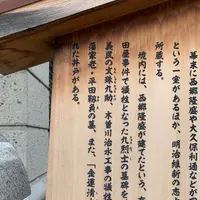 幕末に西郷隆盛や大久保利通などが
という一室があるほか、明治維新の志
所蔵する。
境内には、西郷隆盛が建てたという、
田屋事件で犠牲となった九烈士の墓碑を
美濃の文殊九助、木曽川治水工事の犠牲
藩家老・平田靱負の墓、また、「金運清
れた井戸がある。